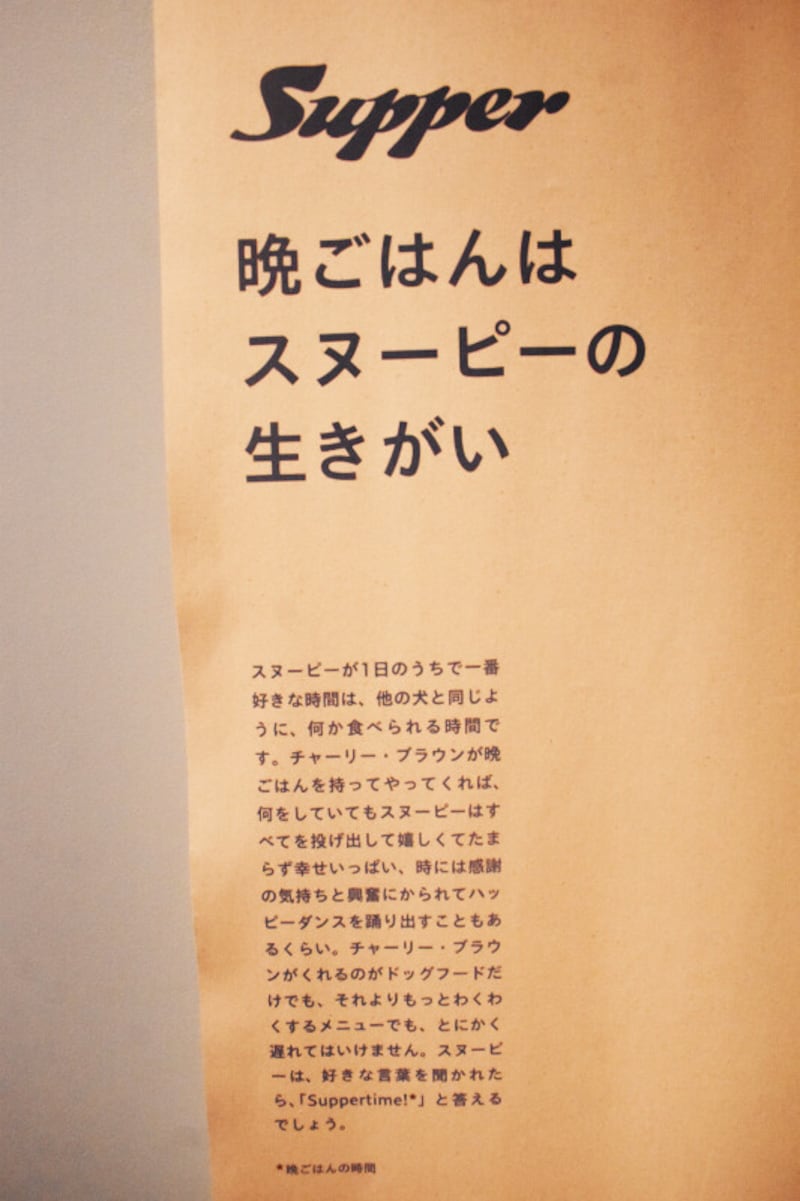 Supper
晩ごはんは
スヌーピーの
生きがい
スヌーピーが1日のうちで一番
好きな時間は、他の犬と同じよ
うに、何か食べられる時間で
す。チャーリー・ブラウンが晩
ごはんを持ってやってくれば、
何をしていてもスヌーピーはす
べてを投げ出して嬉しくてたま
らず幸せいっぱい、時には感謝
の気持ちと興奮にかられてハッ
ピーダンスを踊り出すこともあ
るくらい。チャーリー・ブラウ
ンがくれるのがドッグフードだ
けでも、それよりもっとわくわ
くするメニューでも、とにかく
遅れてはいけません。スヌーピ
ーは、好きな言葉を聞かれた
ら、「Suppertime!*」と答える
でしょう。
*晩ごはんの時間